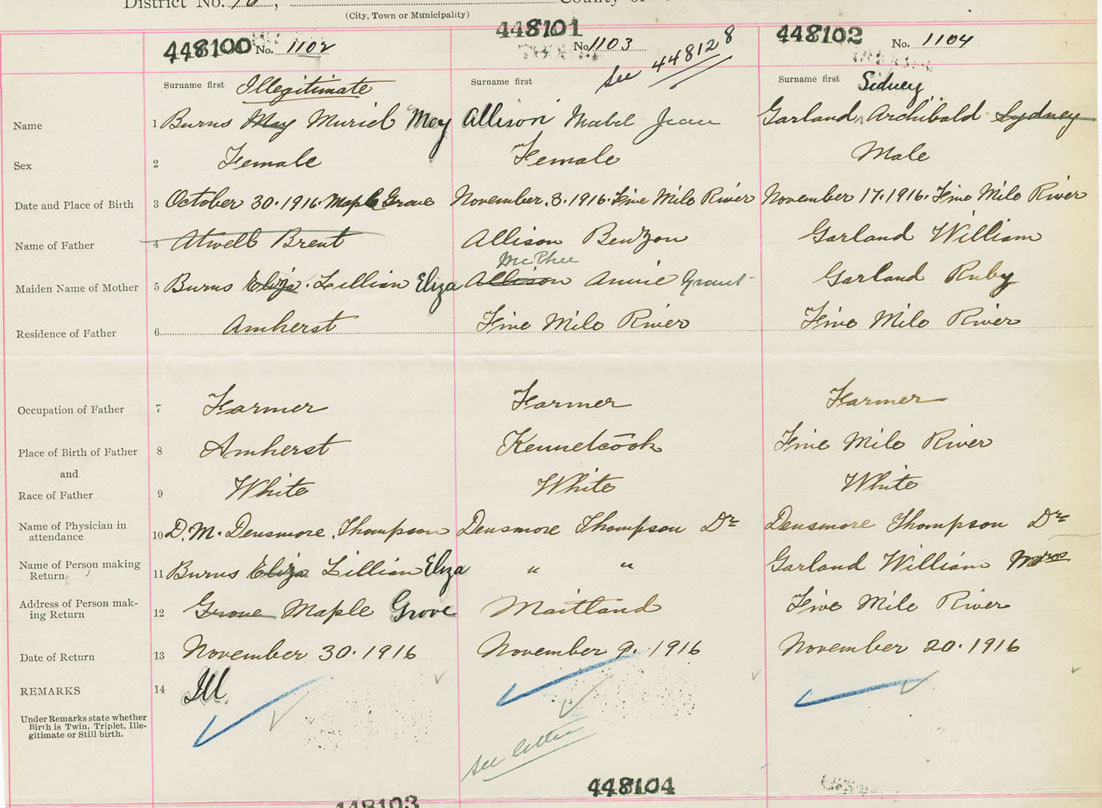 District No. 10, County of
(City, Town or Municipality)
448100 No. 1102
448101 No. 1103
448102 No. 1104
see 448128
Surname first Illegitimate
Surname first
Surname first Sidney
Name 1 Burns May Muriel May
Allison Mabel Jean
Garland Archibald Sydney
Sex 2 Female
Female
Male
Date and Place of Birth 3 October 30. 1916. Maple Grove
November. 3. 1916. Five Mile River
November 17. 1916. Five Mile River
Name of Father 4 Atwell Brent
Allison Benzon
Garland William
McPhee
Maiden Name of Mother 5 Burns Eliza. Lillian Eliza
Allison Annie Grant
Garland Ruby
Residence of Father 6 Amherst
Five Mile River
Five Mile River
Occupation of Father 7 Farmer
Farmer
Farmer
Place of Birth of Father 8 Amherst
Kennetcook
Five Mile River
and
Race of Father 9 White
White
White
Name of Physician in
attendance 10 D. M. Densmore, Thompson
Densmore Thompson Dr
Densmore Thompson Dr
Name of Person making
Return 11 Burns Eliza Lillian Eliza
" "
Garland William Mrs
Address of Person mak-
ing Return 12 Grove Maple Grove
Maitland
Five Mile River
Date of Return 13 November 30. 1916
November 9. 1916
November 20. 1916
REMARKS 14 Ill.
Under Remarks state whether
Birth is Twin, Triplet, Ille-
gitimate or Still birth.
see letter
448103
448104